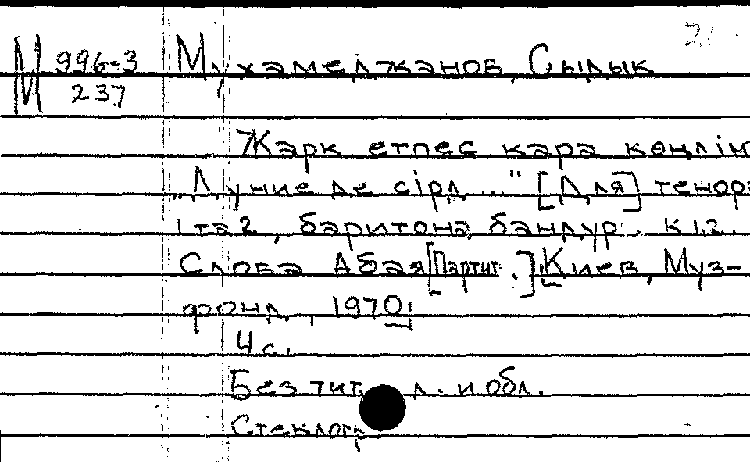 М 996-3 Мухамеджанов, Сыдык
237
Жарк етпес кара көңлiм
„Дуние де сiрд..." [Для] тенора
1 та 2, баритона бандур. к 1,2.
Слова Абая [Партит.]. Киев, Муз-
фонд, 1970.
4 с.
Без тит. л. и обл.
Стеклогр